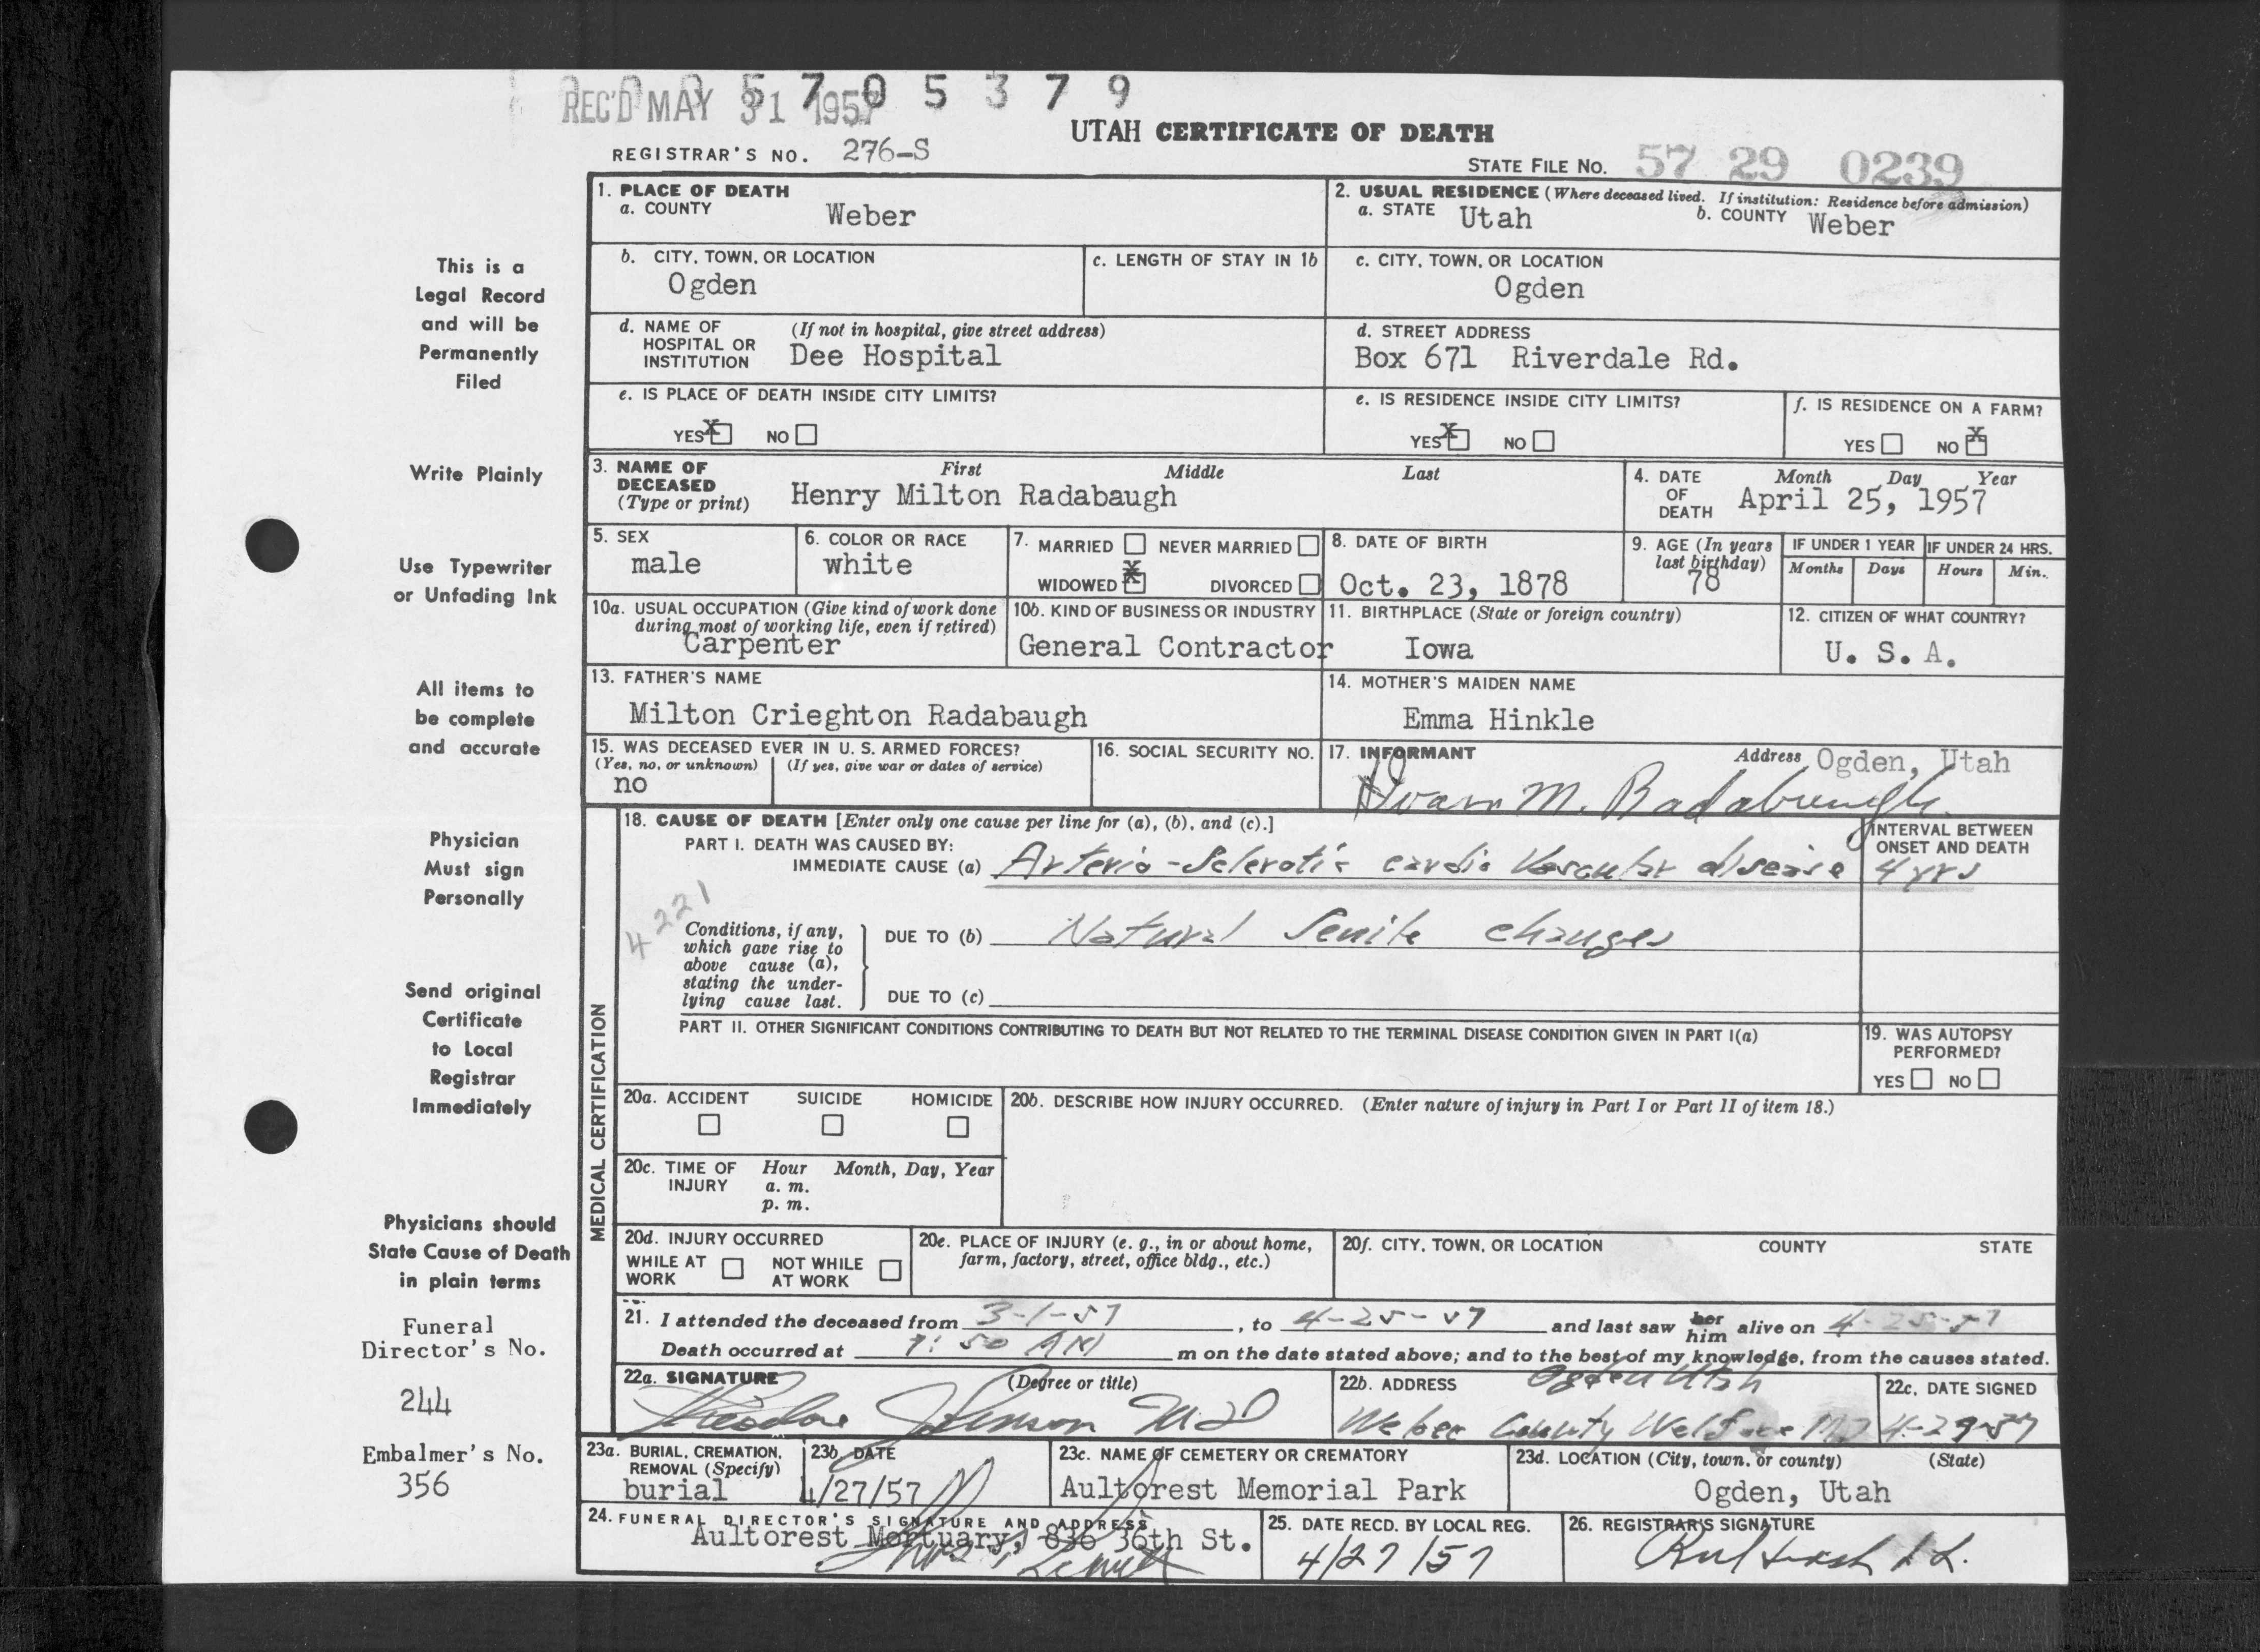 REC'D MAY 31 1957
5 7 0 5 3 7 9
UTAH CERTIFICATE OF DEATH
REGISTRAR'S NO. 276-S
STATE FILE NO. 57 29 0239
1. PLACE OF DEATH
a. COUNTY Weber
2. USUAL RESIDENCE (Where deceased lived. If institution: Residence before admission)
a. STATE Utah b. COUNTY Weber
b. CITY, TOWN, OR LOCATION
Ogden
c. LENGTH OF STAY IN 1b
c. CITY, TOWN, OR LOCATION
Ogden
d. NAME OF HOSPITAL OR INSTITUTION (If not in hospital, give street address)
Dee Hospital
d. STREET ADDRESS
Box 671 Riverdale Rd.
e. IS PLACE OF DEATH INSIDE CITY LIMITS?
YES X NO
e. IS RESIDENCE INSIDE CITY LIMITS?
YES X NO
f. IS RESIDENCE ON A FARM?
YES NO X
3. NAME OF DECEASED (Type or print) First Middle Last
Henry Milton Radabaugh
4. DATE OF DEATH Month Day Year
April 25, 1957
5. SEX
male
6. COLOR OR RACE
white
7. MARRIED NEVER MARRIED
WIDOWED X DIVORCED
8. DATE OF BIRTH
Oct. 23, 1878
9. AGE (In years last birthday)
78
IF UNDER 1 YEAR IF UNDER 24 HRS.
Months Days Hours Min.
10a. USUAL OCCUPATION (Give kind of work done during most of working life, even if retired)
Carpenter
10b. KIND OF BUSINESS OR INDUSTRY
General Contractor
11. BIRTHPLACE (State or foreign country)
Iowa
12. CITIZEN OF WHAT COUNTRY?
U. S. A.
13. FATHER'S NAME
Milton Crieghton Radabaugh
14. MOTHER'S MAIDEN NAME
Emma Hinkle
15. WAS DECEASED EVER IN U. S. ARMED FORCES?
(Yes, no, or unknown) (If yes, give war or dates of service)
no
16. SOCIAL SECURITY NO.
17. INFORMANT Address Ogden, Utah
M. Radabaugh
MEDICAL CERTIFICATION
18. CAUSE OF DEATH [Enter only one cause per line for (a), (b), and (c).]
INTERVAL BETWEEN ONSET AND DEATH
PART I. DEATH WAS CAUSED BY:
IMMEDIATE CAUSE (a) Arterio-Sclerotic cardio Vascular disease 4 yrs
4221
Conditions, if any, which gave rise to above cause (a), stating the underlying cause last.
DUE TO (b) Natural Senile changes
DUE TO (c)
PART II. OTHER SIGNIFICANT CONDITIONS CONTRIBUTING TO DEATH BUT NOT RELATED TO THE TERMINAL DISEASE CONDITION GIVEN IN PART I(a)
19. WAS AUTOPSY PERFORMED?
YES NO
20a. ACCIDENT SUICIDE HOMICIDE
20b. DESCRIBE HOW INJURY OCCURRED. (Enter nature of injury in Part I or Part II of item 18.)
20c. TIME OF INJURY Hour Month, Day, Year
a. m.
p. m.
20d. INJURY OCCURRED
WHILE AT WORK NOT WHILE AT WORK
20e. PLACE OF INJURY (e. g., in or about home, farm, factory, street, office bldg., etc.)
20f. CITY, TOWN, OR LOCATION COUNTY STATE
21. I attended the deceased from 3-1-57, to 4-25-57 and last saw her him alive on 4-25-57
Death occurred at 7:50 AM m on the date stated above; and to the best of my knowledge, from the causes stated.
22a. SIGNATURE (Degree or title)
Theodore Johnson MD
22b. ADDRESS Ogden Utah
Weber County Welfare
22c. DATE SIGNED
4-29-57
23a. BURIAL, CREMATION, REMOVAL (Specify)
burial
23b DATE
4/27/57
23c. NAME OF CEMETERY OR CREMATORY
Aultorest Memorial Park
23d. LOCATION (City, town, or county) (State)
Ogden, Utah
24. FUNERAL DIRECTOR'S SIGNATURE AND ADDRESS
Aultorest Mortuary, 836 36th St.
25. DATE RECD. BY LOCAL REG.
4/27/57
26. REGISTRAR'S SIGNATURE
This is a
Legal Record
and will be
Permanently
Filed
Write Plainly
Use Typewriter
or Unfading Ink
All items to
be complete
and accurate
Physician
Must sign
Personally
Send original
Certificate
to Local
Registrar
Immediately
Physicians should
State Cause of Death
in plain terms
Funeral
Director's No.
244
Embalmer's No.
356